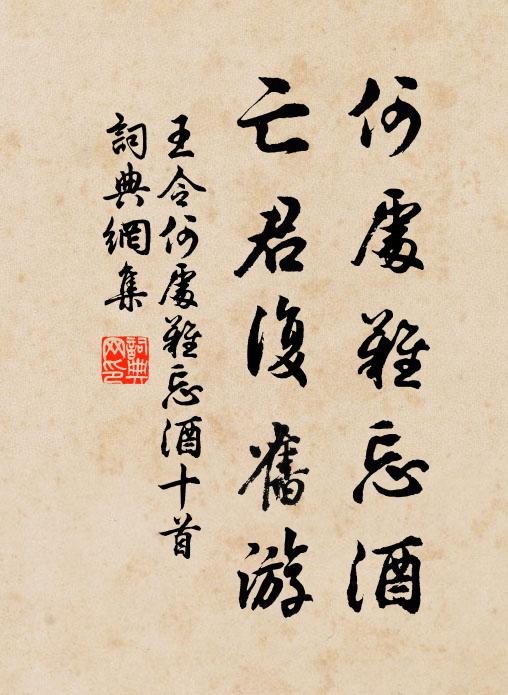 何處難忘酒
亡君復舊游
王令何處難忘酒十首
詞典網集
詞典網印